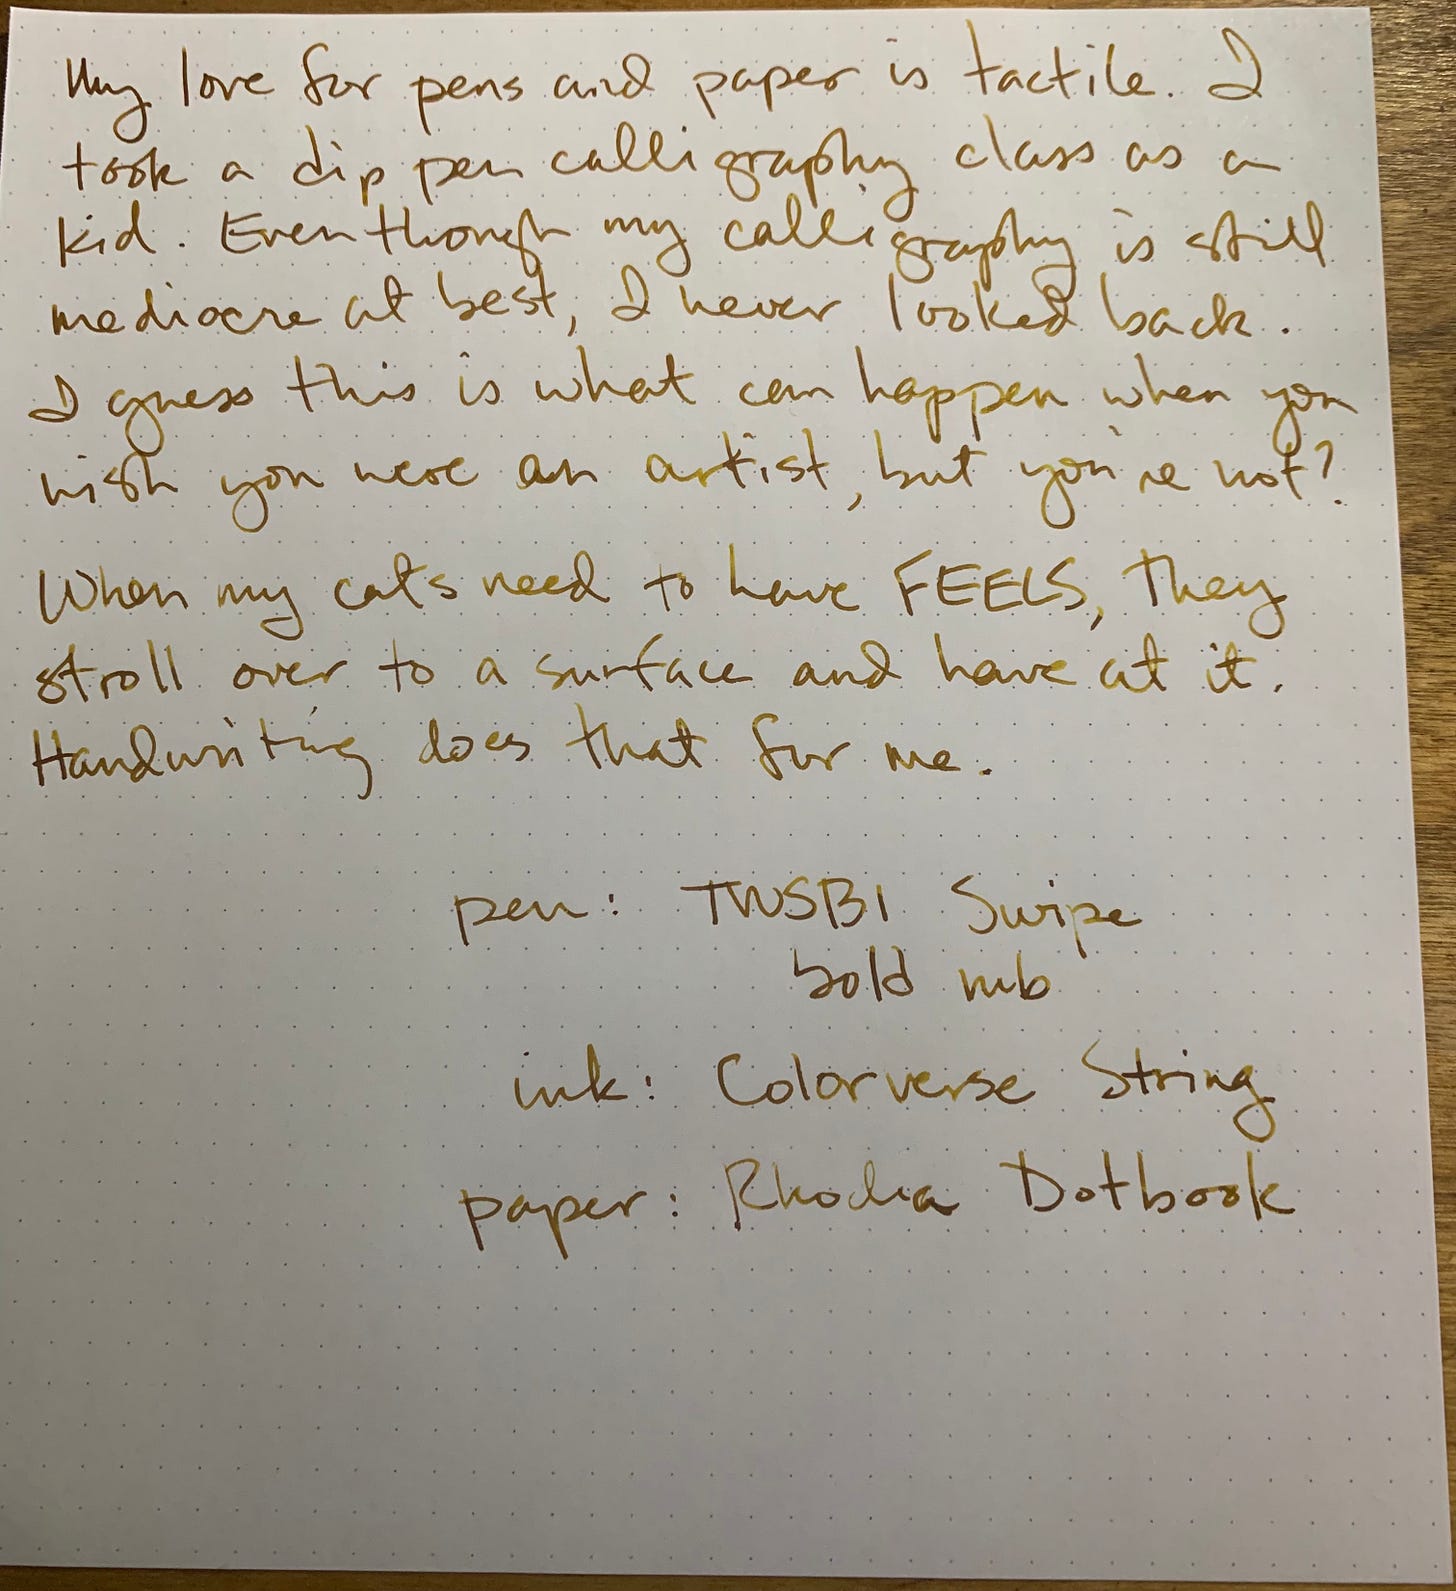 My love for pens and paper is tactile. I
took a dip pen calligraphy class as a
kid. Even though my calligraphy is still
mediocre at best, I never looked back.
I guess this is what can happen when you
wish you were an artist, but you're not?
When my cats need to have FEELS, they
stroll over to a surface and have at it.
Handwriting does that for me.
pen: TWSBI Swipe
bold nib
ink: Colorverse String
paper: Rhodia Dotbook